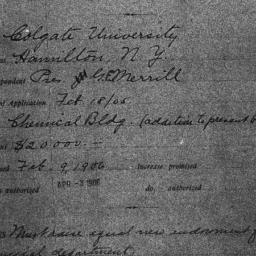 Colgate University
Hamilton, N. Y.
Pres G. E. Merrill
Application Feb 18/05
Chemical Bldg. (addition to present
$20,000.—
Feb. 9, 1906 Increase promised
authorized APR -3 1906 do. authorized
Must raise equal new endowment
department